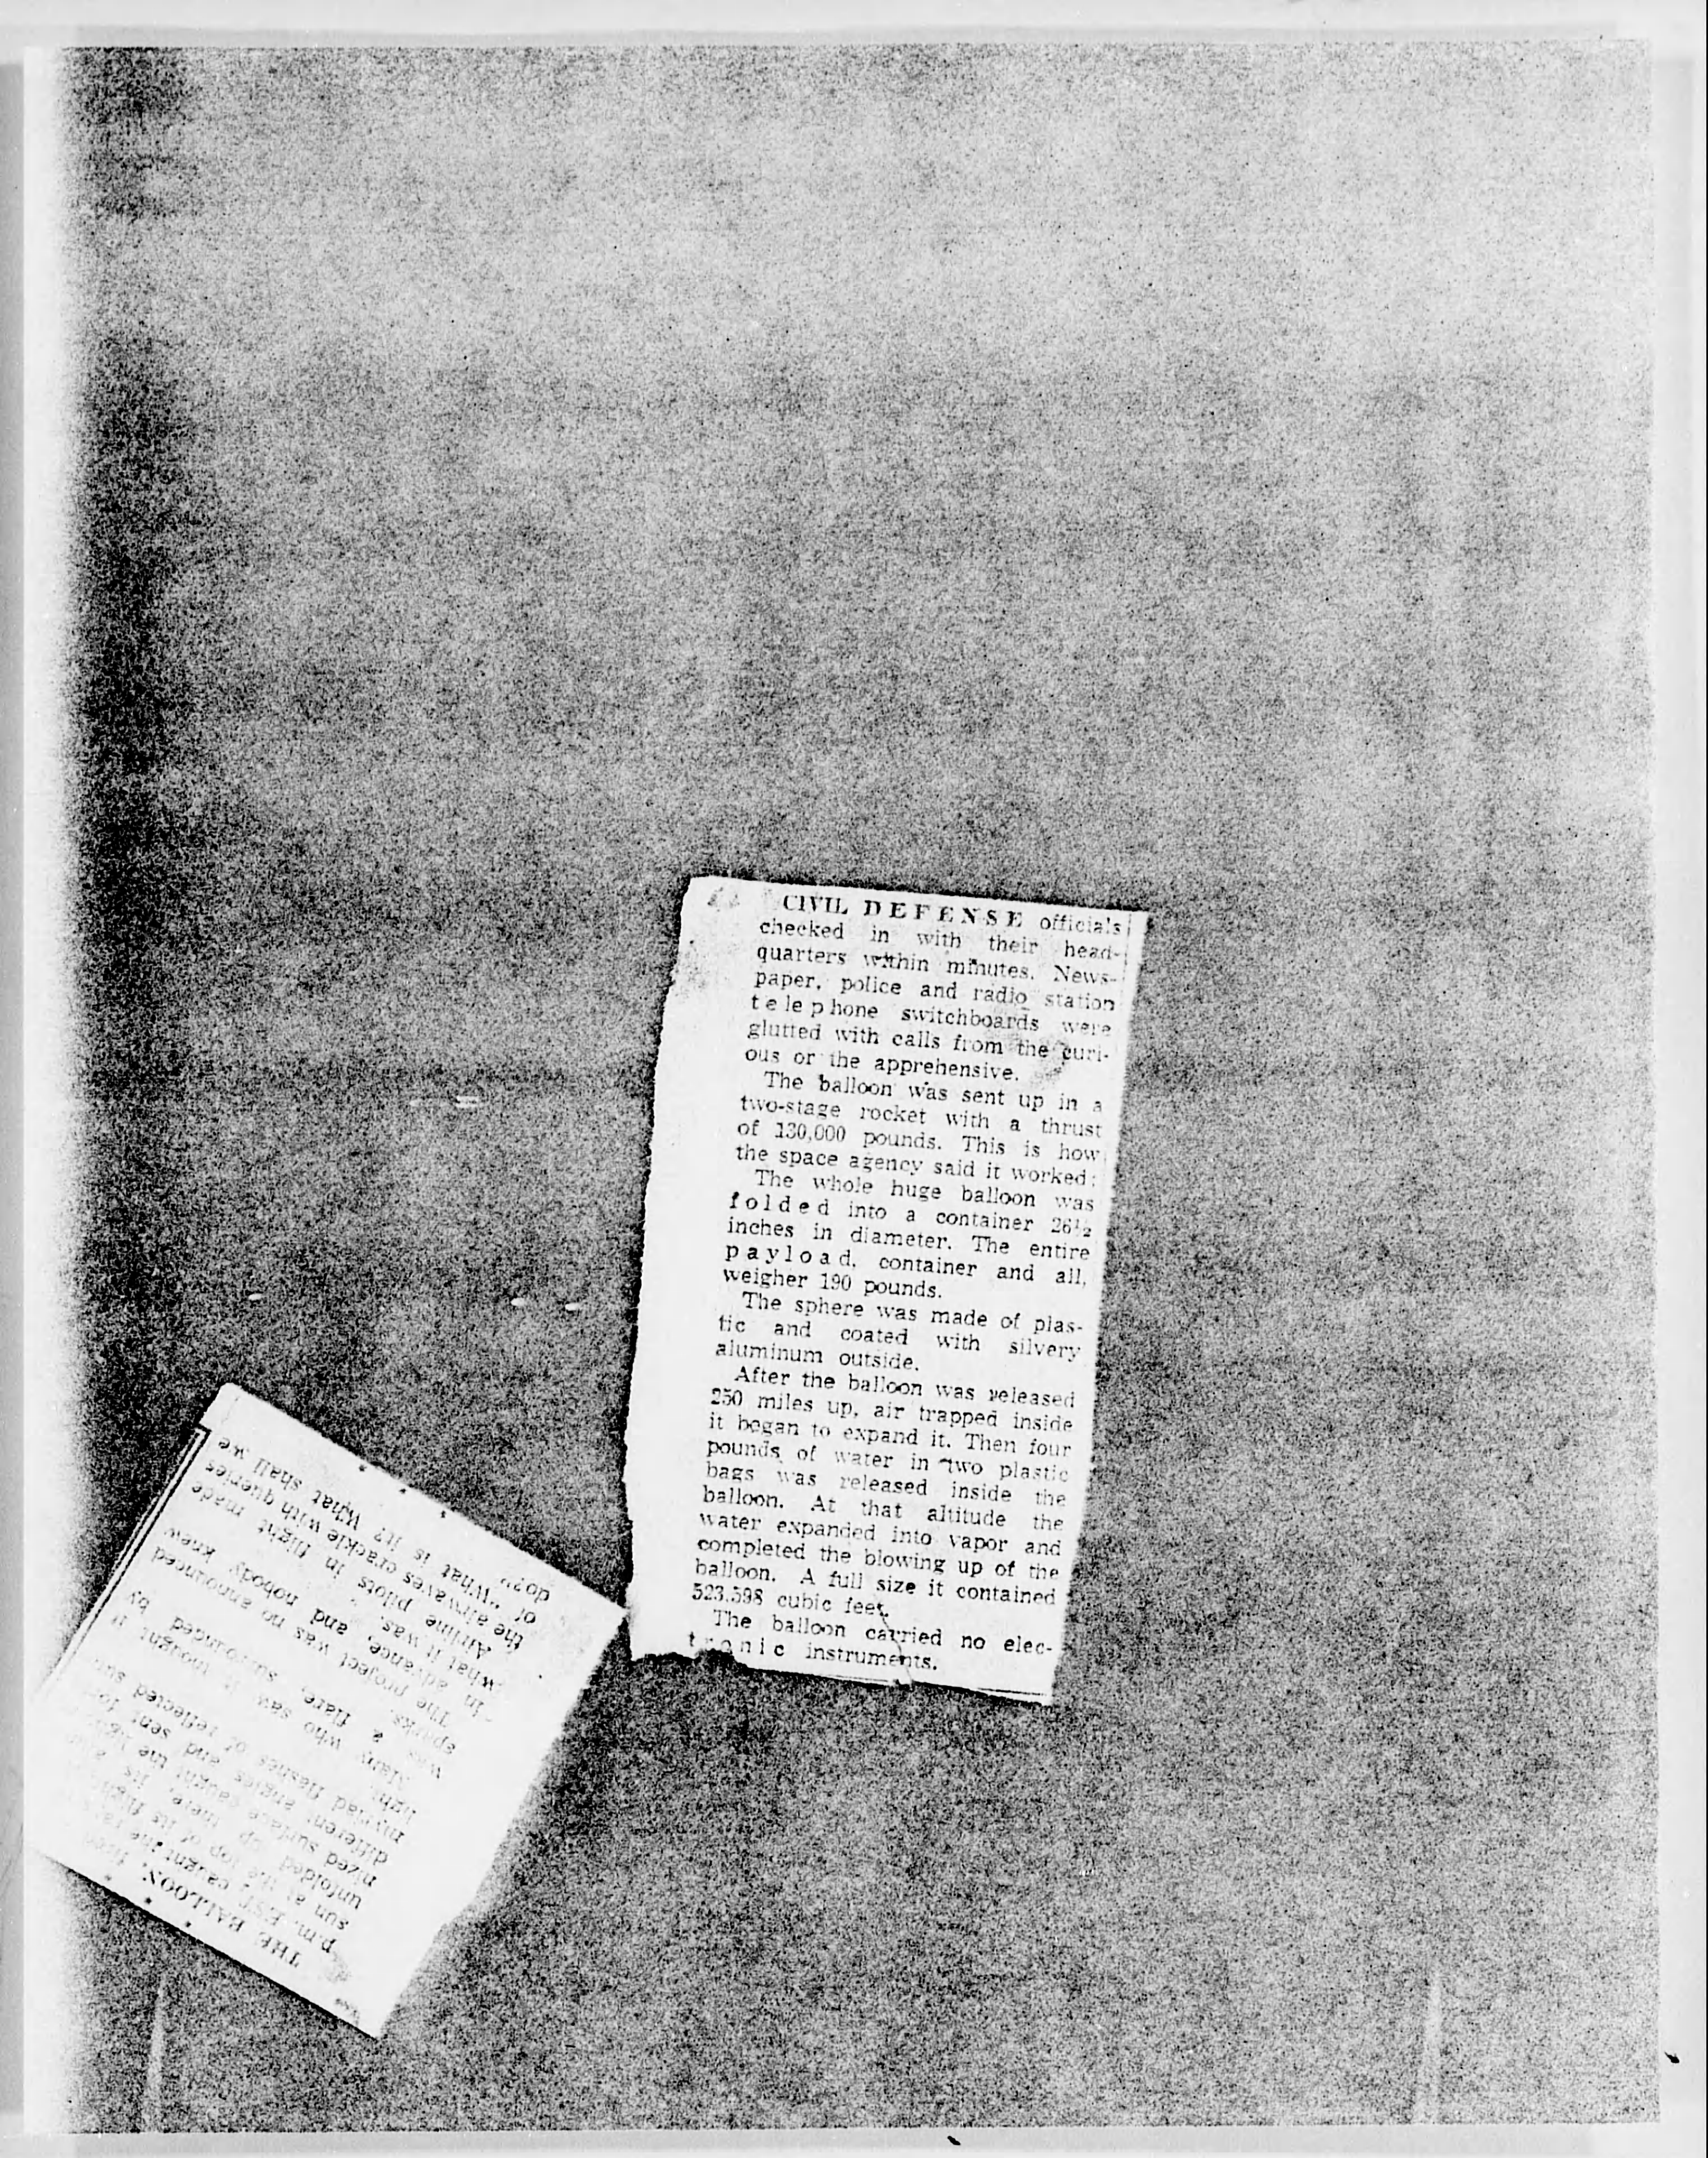 CIVIL DEFENSE officials
checked in with their head-
quarters within minutes. News-
paper, police and radio station
telephone switchboards were
glutted with calls from the curi-
ous or the apprehensive.
The balloon was sent up in a
two-stage rocket with a thrust
of 130,000 pounds. This is how
the space agency said it worked:
The whole huge balloon was
folded into a container 26½
inches in diameter. The entire
payload, container and all,
weigher 190 pounds.
The sphere was made of plas-
tic and coated with silvery
aluminum outside.
After the balloon was released
250 miles up, air trapped inside
it began to expand it. Then four
pounds of water in two plastic
bags was released inside the
balloon. At that altitude the
water expanded into vapor and
completed the blowing up of the
balloon. A full size it contained
523,598 cubic feet.
The balloon carried no elec-
tronic instruments.
THE BALLOON,
p.m. EST, caught the
sun at the top of its
unfolded up there, its
nized surface caught the
different angles and sent
myriad flashes of reflected sun
light.
Many who saw it thought it
was a flare, surrounded by
sparks.
The project was no announced
in advance, and nobody knew
what it was.
Airline pilots in flight made
the airwaves crackle with queries
of "What is it? What shall we
do?"